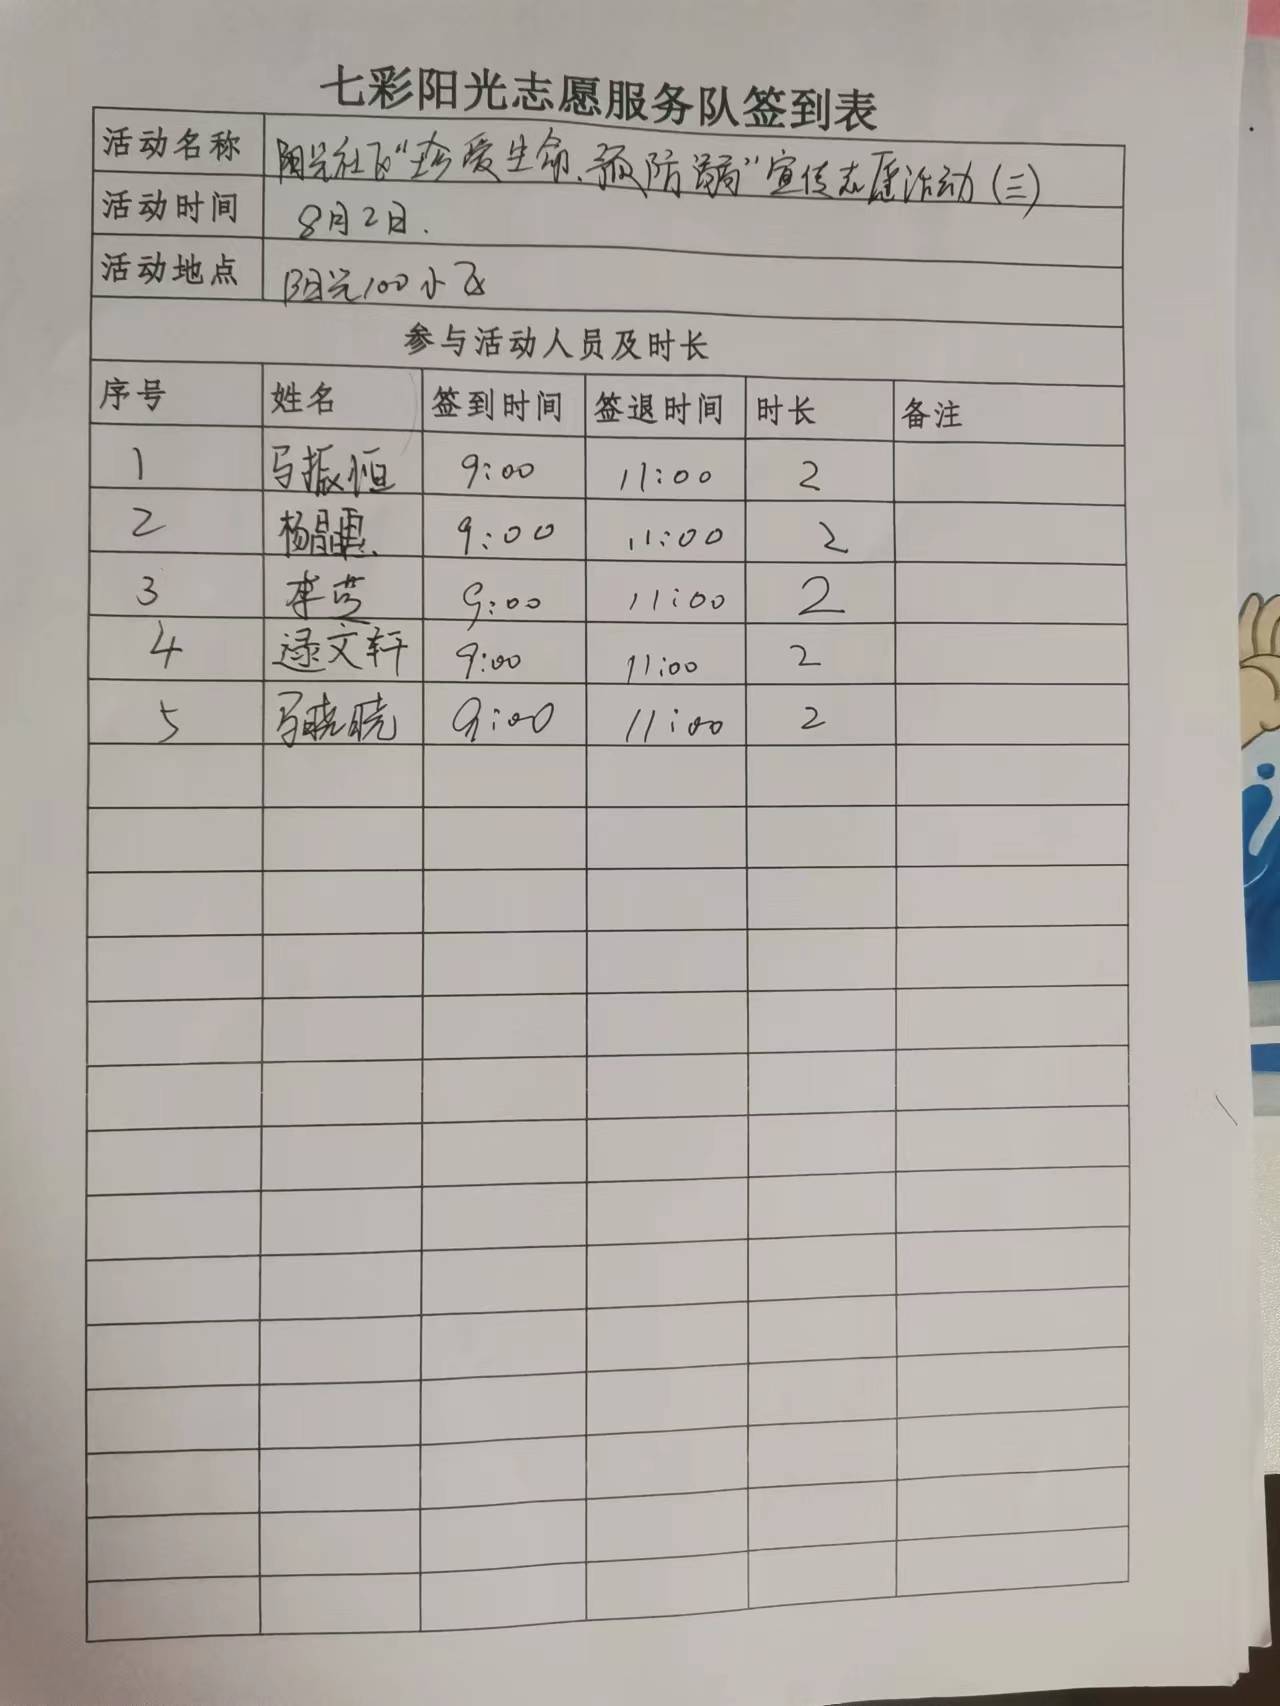 七彩阳光志愿服务队签到表
活动名称 阳光社区“珍爱生命、预防溺水”宣传志愿活动(三)
活动时间 8月2日.
活动地点 阳光100小区
参与活动人员及时长
序号 姓名 签到时间 签退时间 时长 备注
1 马振恒 9:00 11:00 2
2 9:00 11:00 2
3 李芝 9:00 11:00 2
4 逯文轩 9:00 11:00 2
5 马晓晓 9:00 11:00 2